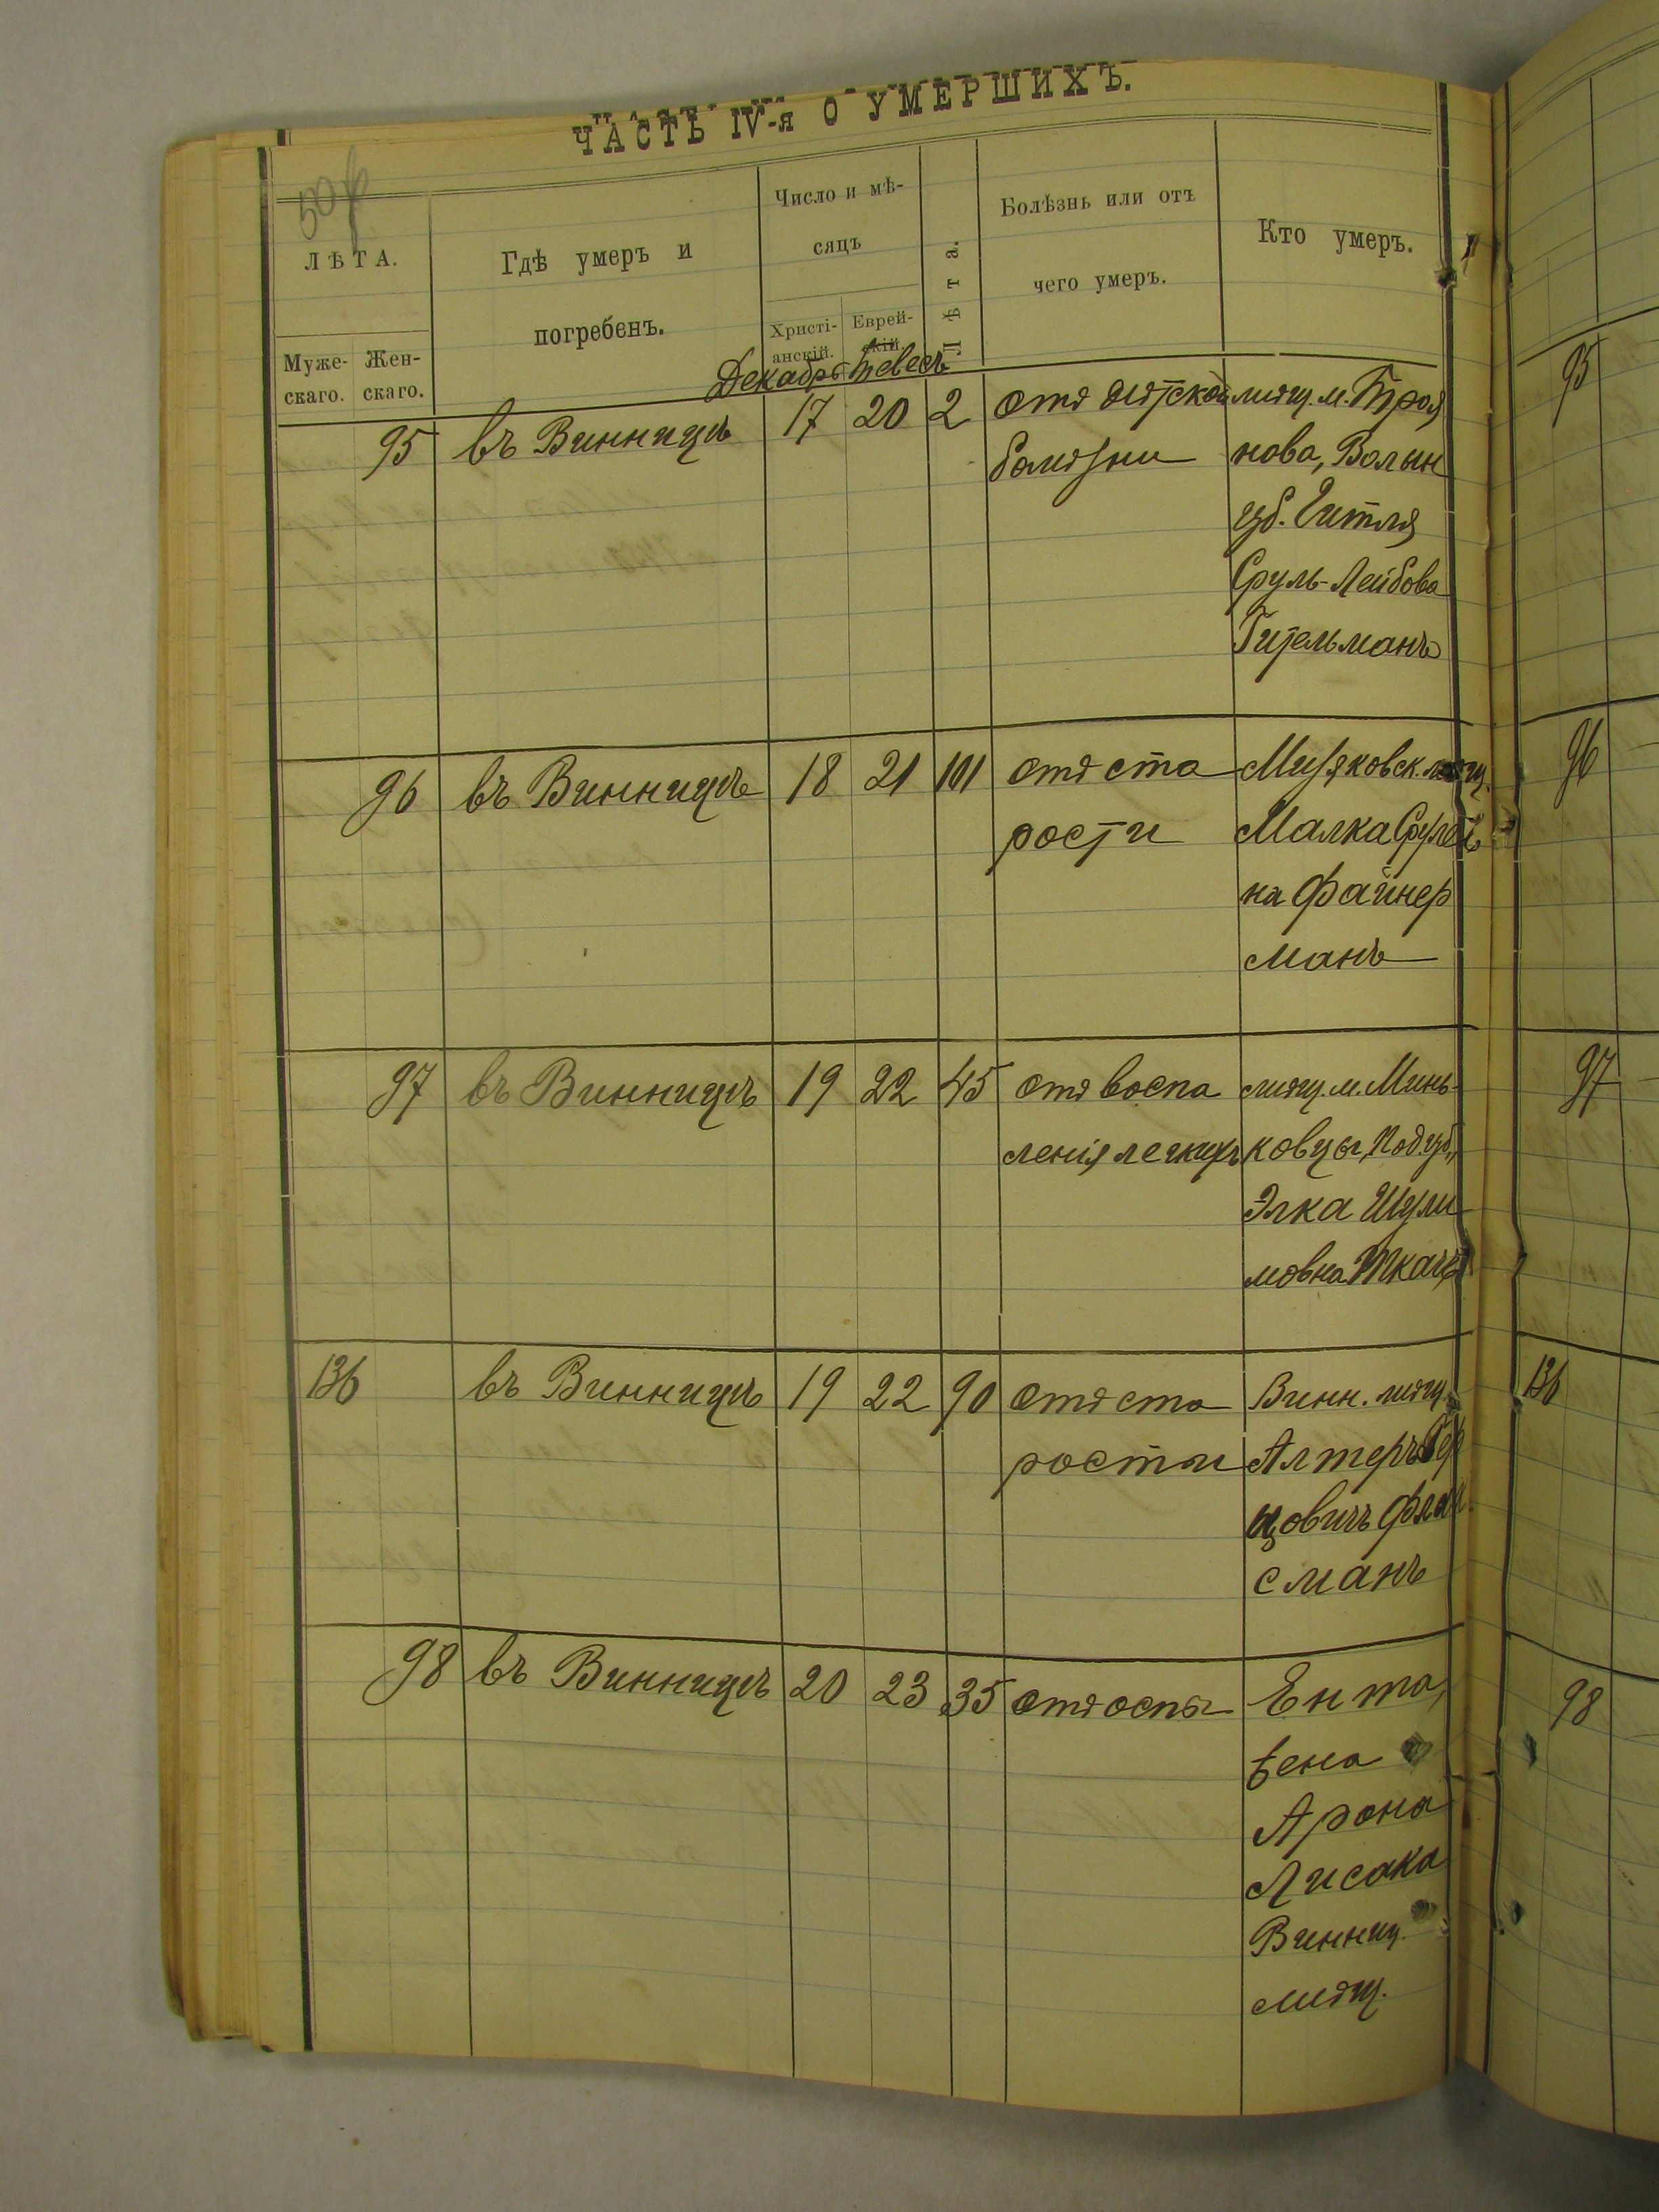 ЧАСТЬ IV-я О УМЕРШИХЪ.
ЛѢТА.
Муже-
скаго.
Жен-
скаго.
Гдѣ умеръ и
погребенъ.
Число и мѣ-
сяцъ
Христі-
анскій.
Еврей-
скій.
Лѣта.
Болѣзнь или отъ
чего умеръ.
Кто умеръ.
Декабрь Тевесъ
95 въ Винницѣ 17 20 2 отъ дѣтской мѣщ. м. Троя
болѣзни нова, Волын
губ. Гитля
Сруль-Лейбова
Гительманъ
96 въ Винницѣ 18 21 101 отъ ста Мизяковск. мѣщ.
рости Малка Срулев
на Файнер
манъ
97 въ Винницѣ 19 22 45 отъ воспа мѣщ. м. Минь-
ленія легкихъ ковцы, Под. губ.,
Элка Шули
мовна Ткачъ
136 въ Винницѣ 19 22 90 отъ ста Винн. мѣщ.
рости Алтеръ Гер
цовичъ
сманъ
98 въ Винницѣ 20 23 35 отъ оспы Ента,
жена
Арона
Лисака
Винниц.
мѣщ.
95
96
97
136
98